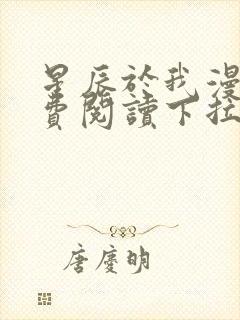 星辰於我漫
費閱讀下拉
唐慶明